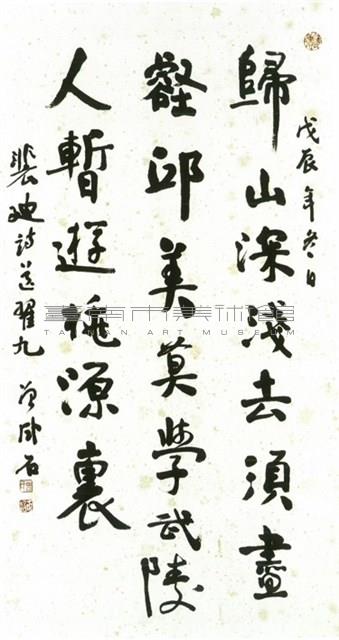 戊辰年冬日
歸山深淺去須盡
壑邱美莫學武陵
人暫遊桃源裏
裴迪詩送翟九 曾臥石
臺南市美術館
TAINAN ART MUSEUM